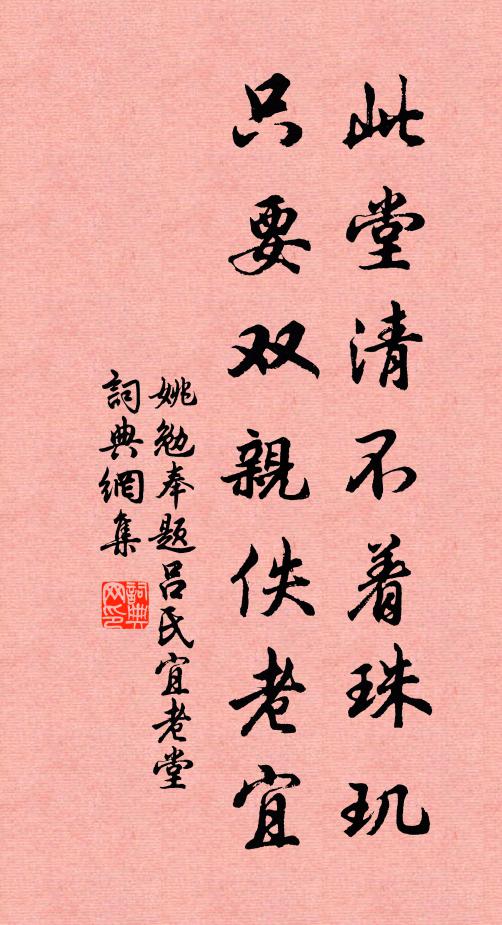 此堂清不着珠玑
只要双親佚老宜
姚勉奉题吕氏宜老堂
詞典網集
詞典網印